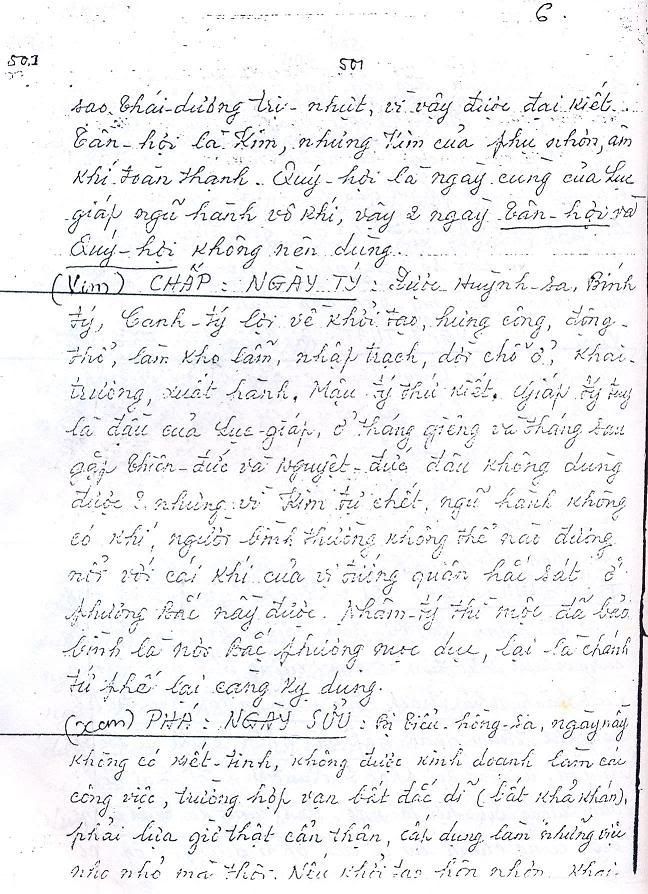 6.
501
501
sao thái-dương trị-nhựt, vì vậy được đại kiết.
Tân-hợi là Kim, nhưng Kim của phụ nhơn, âm
khí toàn thạnh. Quý-hợi là ngày cùng của Lục
giáp ngũ hành vô khí, vậy 2 ngày Tân-hợi và
Quý-hợi không nên dùng.
(Xim) CHẤP : NGÀY TÝ : Được Huỳnh-sa, Bính
tý, Canh-tý lợi về khởi tạo, hưng công, động-
thổ, làm kho lẫm, nhập trạch, dời chỗ ở, khai-
trương, xuất hành. Mậu-tý thứ kiết. Giáp Tý tuy
là đầu của Lục-giáp, ở tháng giêng và tháng sau
gặp Thiên-đức và Nguyệt-đức đâu không dùng
được ? nhưng vì Kim tự chết, ngũ hành không
có khí, người bình thường không thể nào đương
nổi với cái khí của vị tướng quân hắc sát ở
phương Bắc nầy được. Nhâm-tý thì mộc đã bảo
bình là nơi Bắc phương mộc dục, lại là chánh
tứ phế lại càng kỵ dùng.
(xem) PHÁ : NGÀY SỬU : Bị Tiểu-hồng-sa, ngày nầy
không có kiết-tinh, không được kinh doanh làm các
công việc, trường hợp vạn bất đắc dĩ (bất khả kháng),
phải lựa giờ thật cẩn thận, cấp dụng làm những việc
nho nhỏ mà thôi. Nếu khởi tạo hôn nhơn khai-